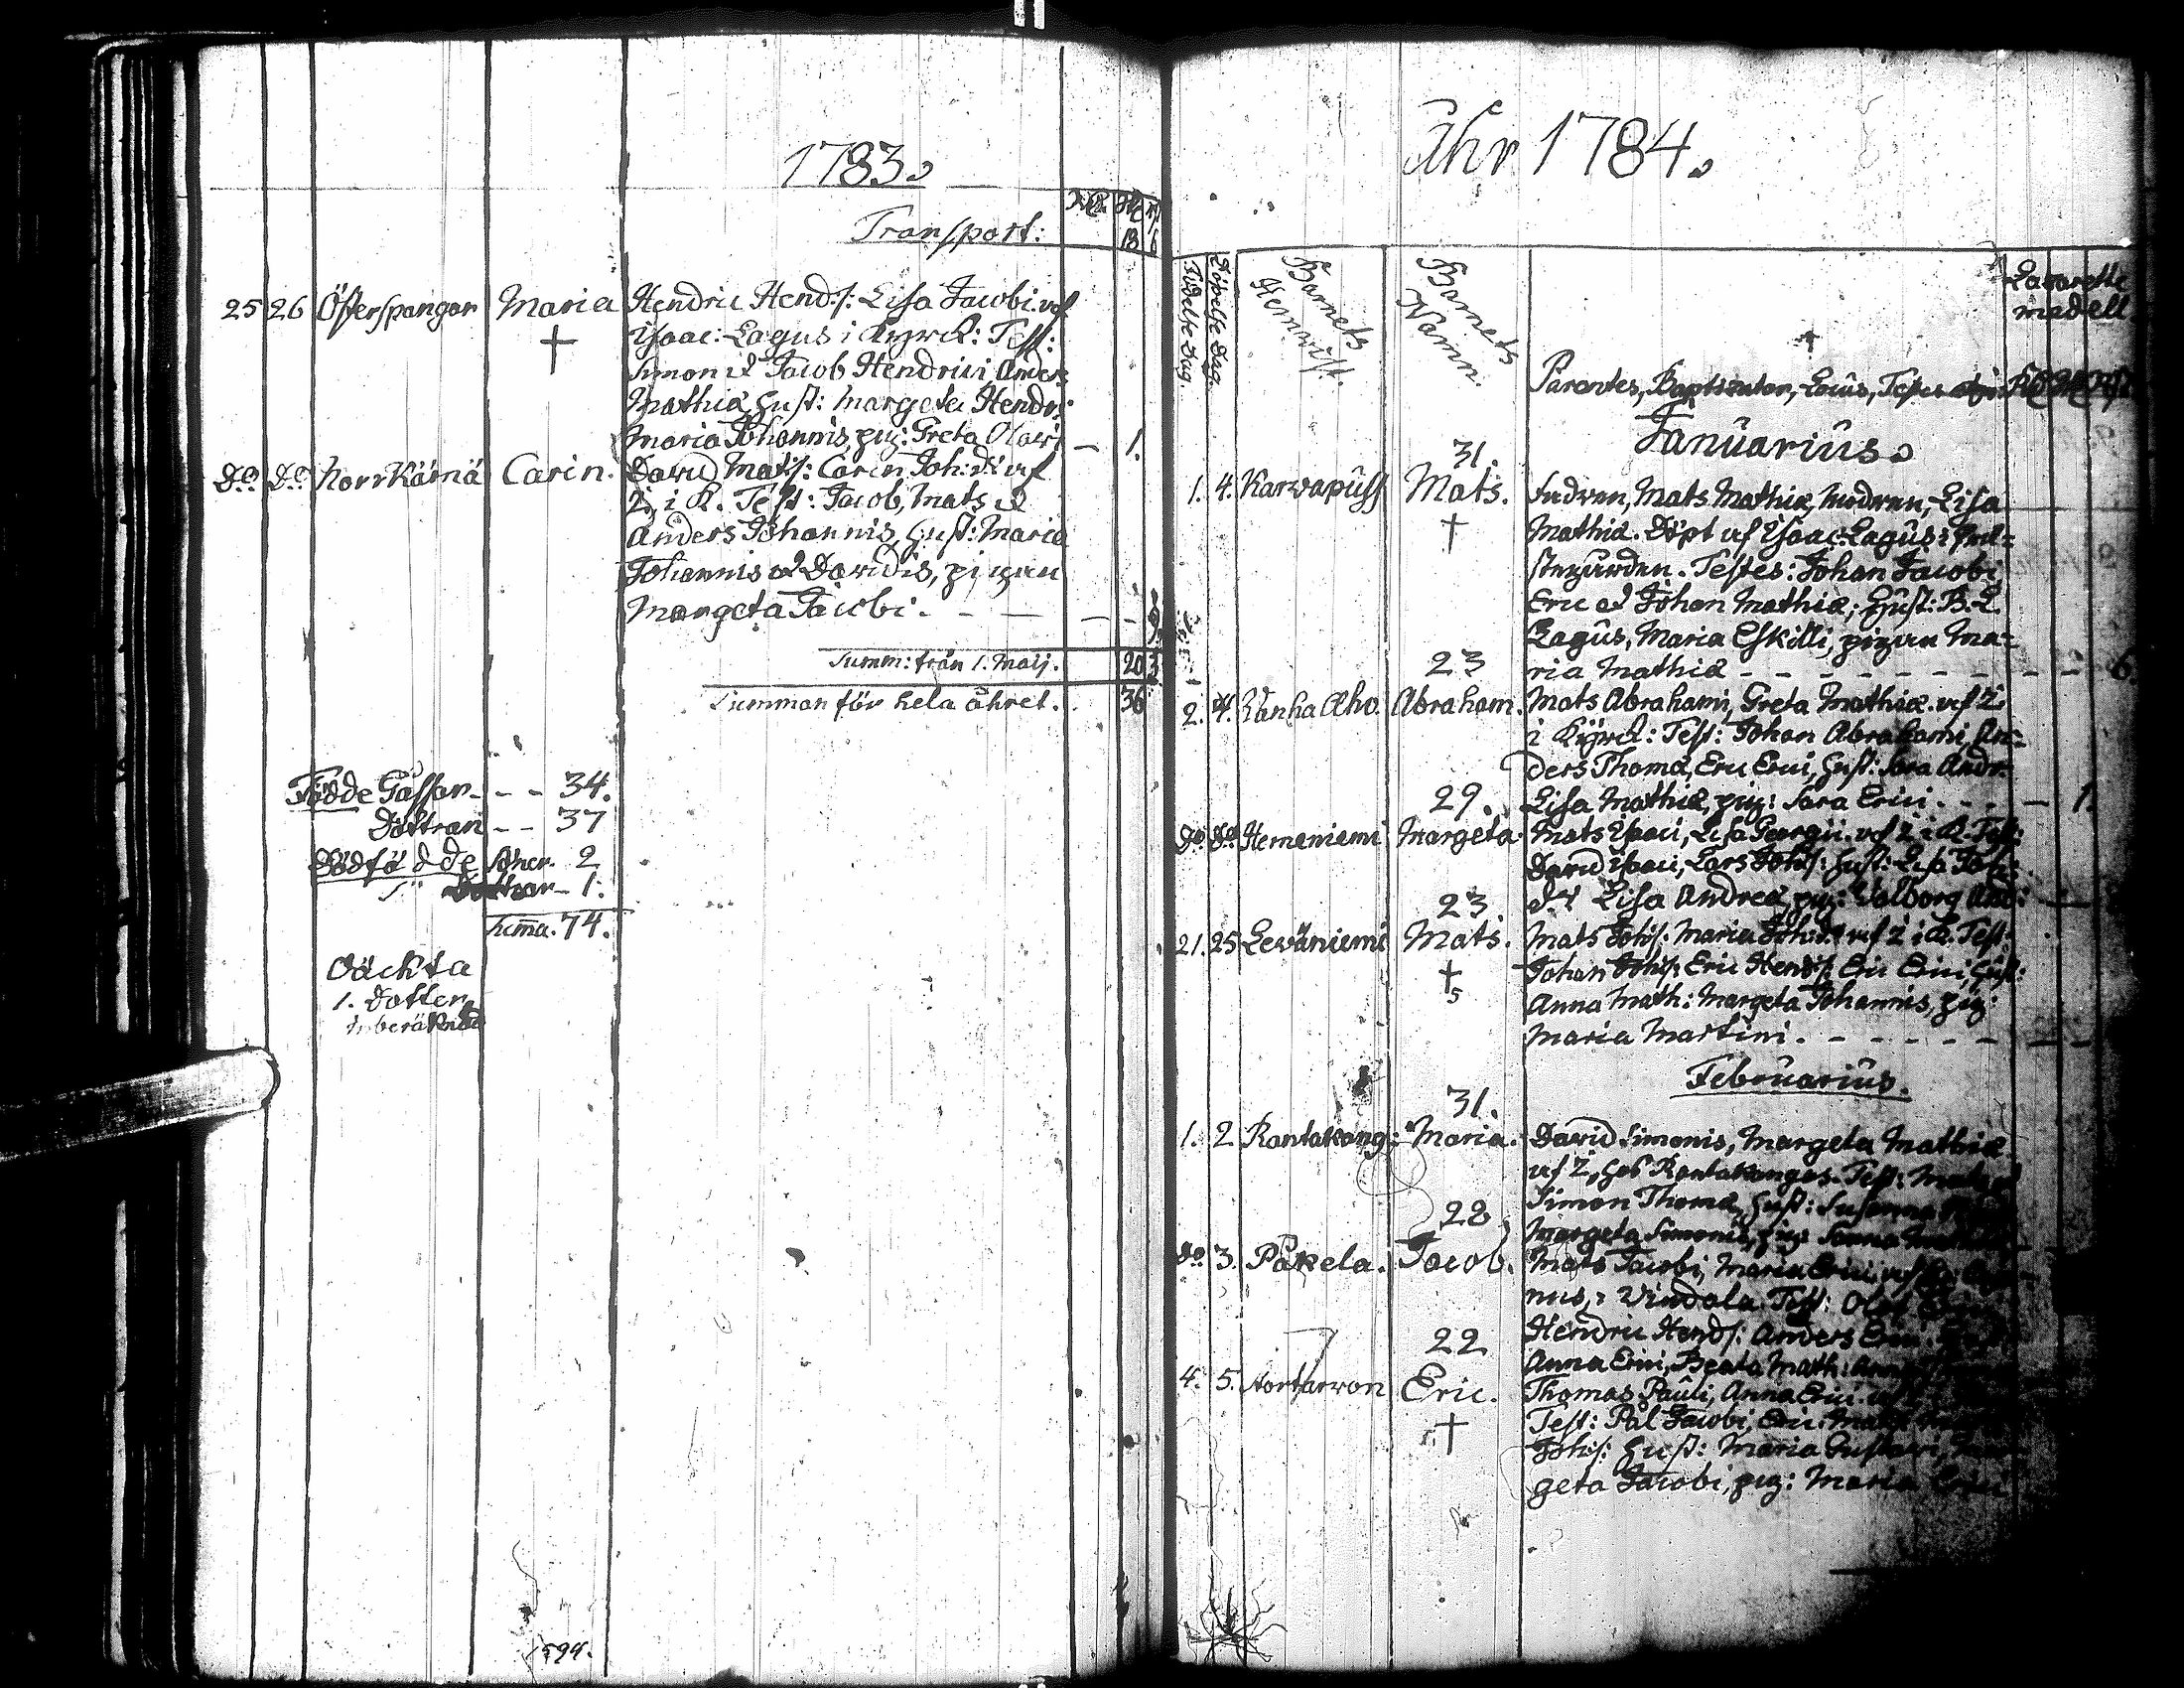 1783.
Transport: 18
25 26 Österspangar Maria Hendric Hend:s: Lisa Jacobi. af
Isaac: Lagus i Kyrck: Test:
Simon & Jacob Hendrici Anders
Mathiæ, Hust: Margeta Hendr:
Maria Johannis, pig: Greta Olawi — 1.
Do. Do. Norrkärnä Carin. David Mats: Carin Joh:
i K. Test: Jacob, Mats &
Anders Johannis, Hust: Maria
Johannis & Davidis, pigan
Margeta Jacobi. — — —
Summ: från 1. Maij. 20
Summan för hela åhret. 36
Födde Gåssar - - - 34.
Döttrar - - 37
Dödfödde Söner. 2
Döttrar - 1.
Suma. 74.
Oäckta
1. Dotter
inberäknad
594.
Åhr 1784.
Födelse Dag.
Döpelse Dag.
Barnets
Hemwist.
Barnets
Namn.
Lazarette
medell
Parentes, Baptizator, Locus, Testes
Januarius.
31.
1. 4. Karvapuss Mats. Fadren, Mats Mathiæ, Modren, Lisa
Mathiæ. Döpt af Isaac: Lagus i Prä-
stegården. Testes: Johan Jacobi
Eric & Johan Mathiæ; Hust: B. L.
Lagus, Maria Eskilli, pigan Ma-
23 ria Mathiæ - - - - - - - - - 6.
2. 4. Wanha Aho. Abraham. Mats Abrahami, Greta Mathiæ. af I.
i Kyrck: Test: Johan Abrahami, An-
ders Thomæ, Eric Erici, Hust: Sara Andr:
29. Lisa Mathiæ, pig: Sara Erici. - - - — 1.
Do Do Hemeniemi Margeta Mats Isaaci, Lisa Georgii. af I. i K. Test:
David Isaaci, Lars Joh:s: Hust: Lisa Joh:
23. Lisa Andreæ, pig: Walborg And:
21. 25 Leväniemi Mats. Mats Joh:s: Maria Joh: af I. i K. Test:
Johan Joh:s: Eric Hend:s: Eric Erici, Hust:
5 Anna Math: Margeta Johannis, pig:
Maria Martini. - - - - - - -
Februarius.
31.
1. 2 Rantakang: Maria. David Simonis, Margeta Mathiæ
af I., hos Rantakangas. Test: Mats
28 Simon Thomæ, Hust: Susanna
Margeta Simonis, pig: Sanna
Do 3. Påkela. Jacob. Mats Jacobi, Maria Erici,
nus, i Vindala. Test: Olof
22 Hendric Hend:s: Anders Erici.
Anna Erici, Beata Math:
4. 5. Eric. Thomas Pauli, Anna Erici.
Test: Pål Jacobi, Eric
Joh:s: Hust: Maria Gustavi,
geta Jacobi, pig: Maria Erici